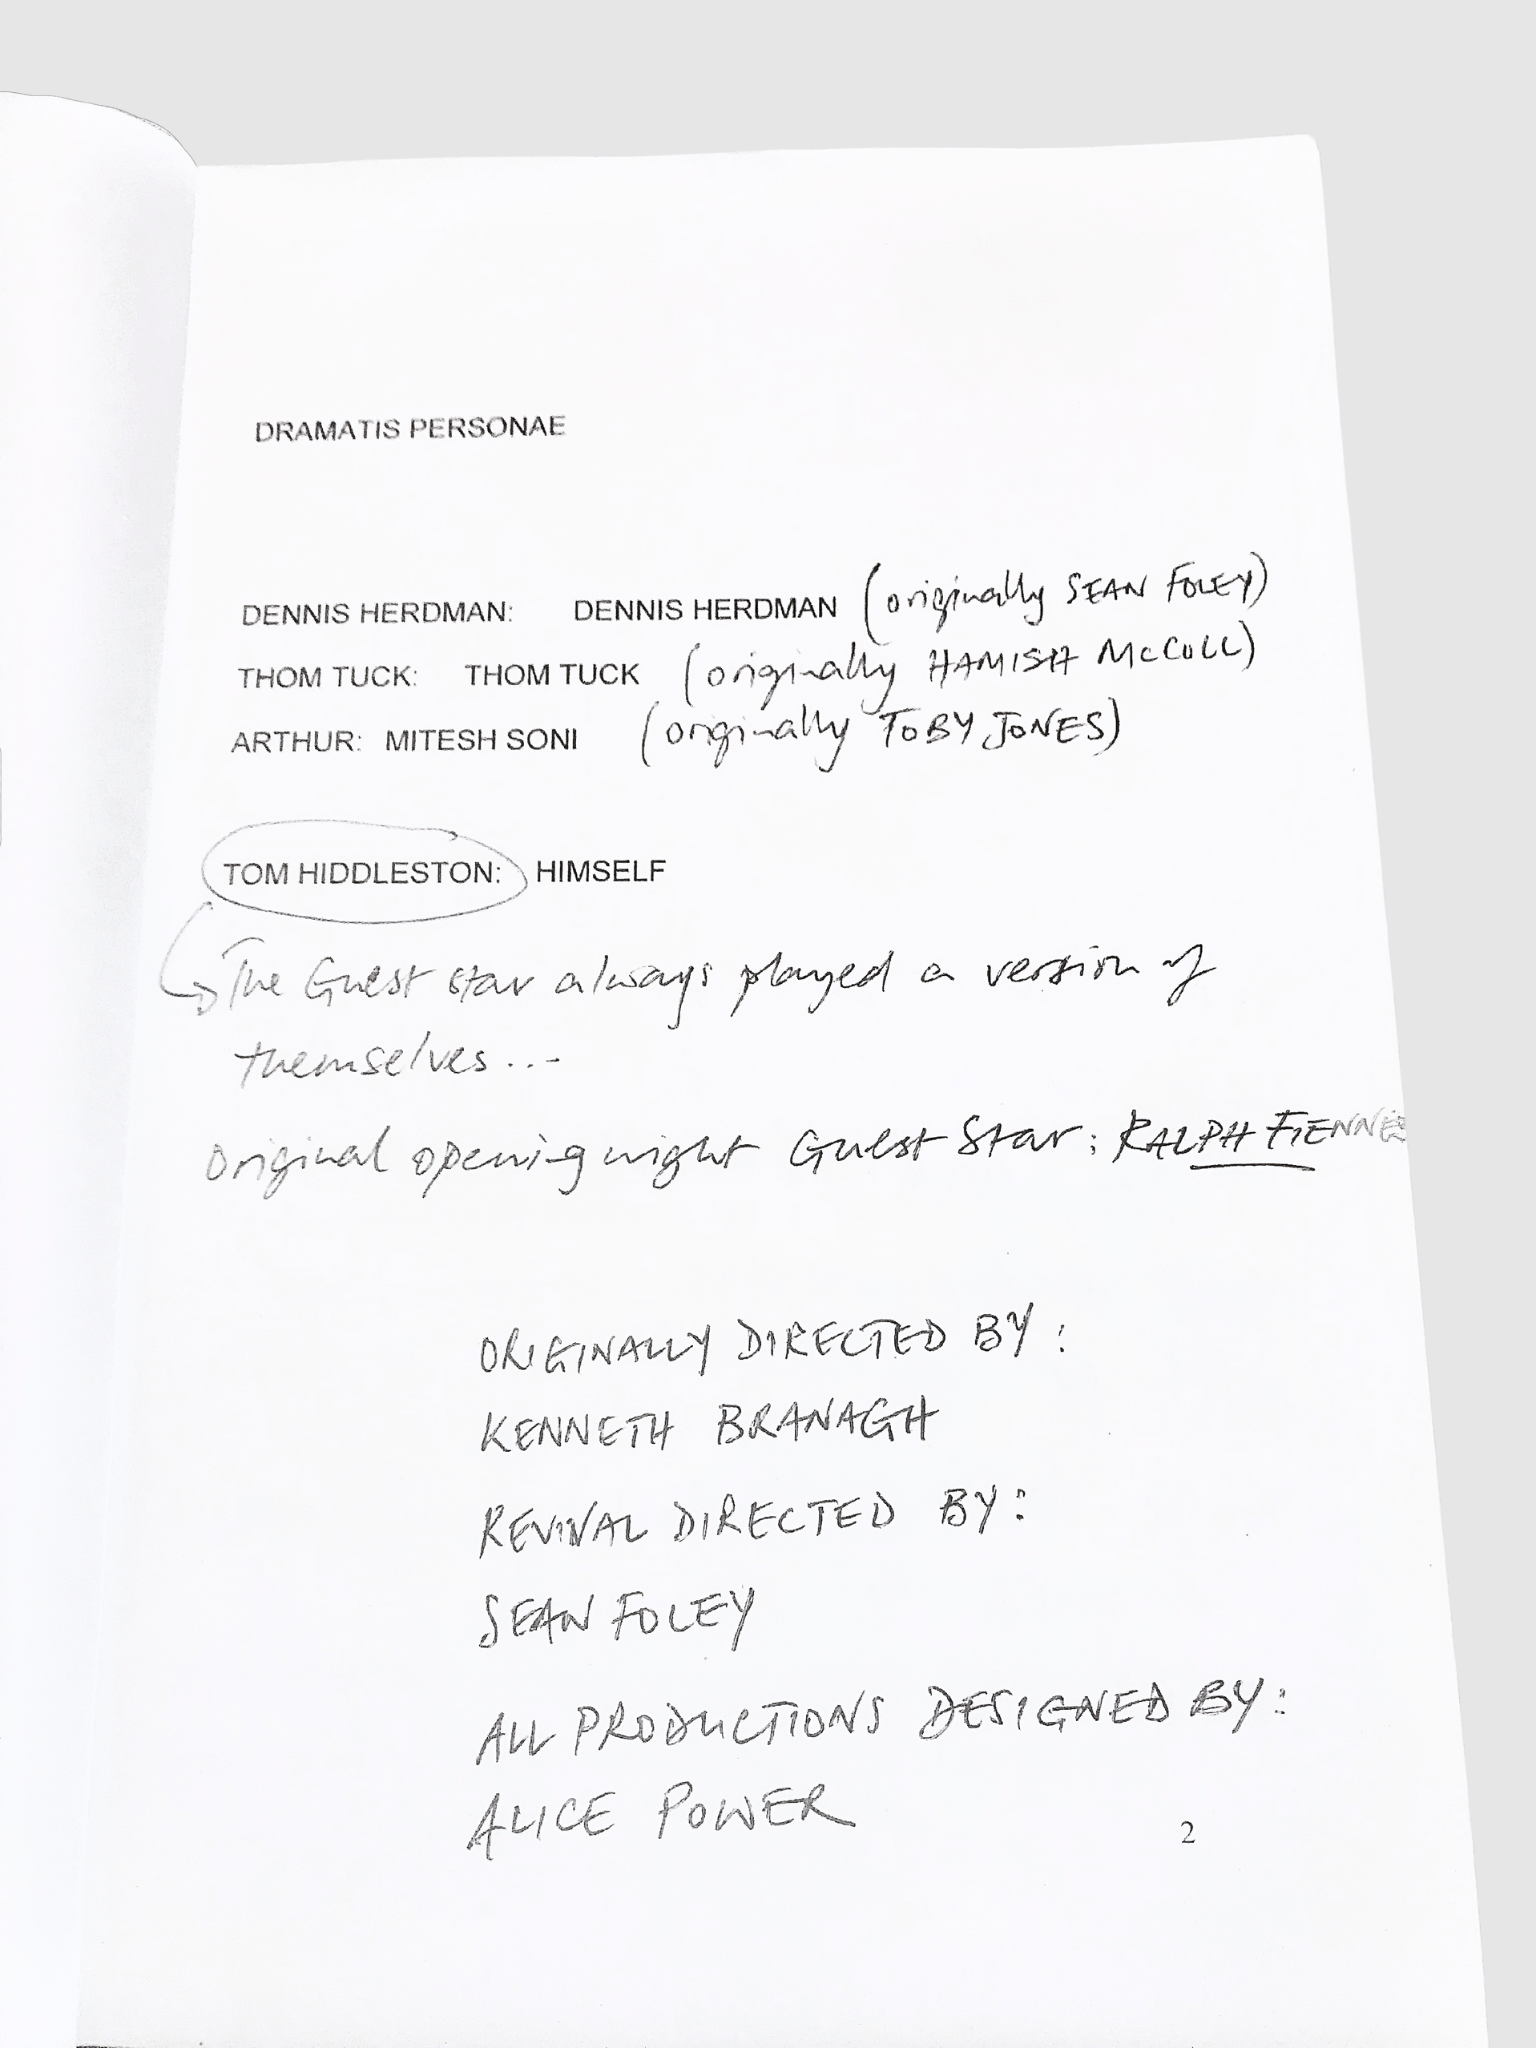 DRAMATIS PERSONAE
DENNIS HERDMAN: DENNIS HERDMAN (originally SEAN FOLEY)
THOM TUCK: THOM TUCK (originally HAMISH McCOLL)
ARTHUR: MITESH SONI (originally TOBY JONES)
TOM HIDDLESTON: HIMSELF
The Guest star always played a version of
themselves...
Original opening night Guest Star: RALPH FIENNES
ORIGINALLY DIRECTED BY:
KENNETH BRANAGH
REVIVAL DIRECTED BY:
SEAN FOLEY
ALL PRODUCTIONS DESIGNED BY:
ALICE POWER
2